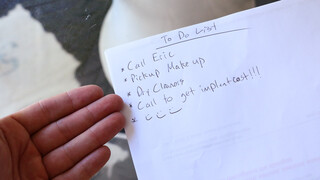 To Do List
* Call Eric
* Pickup Make up
* Dry Cleaners
* Call to get implant cast!!!
*